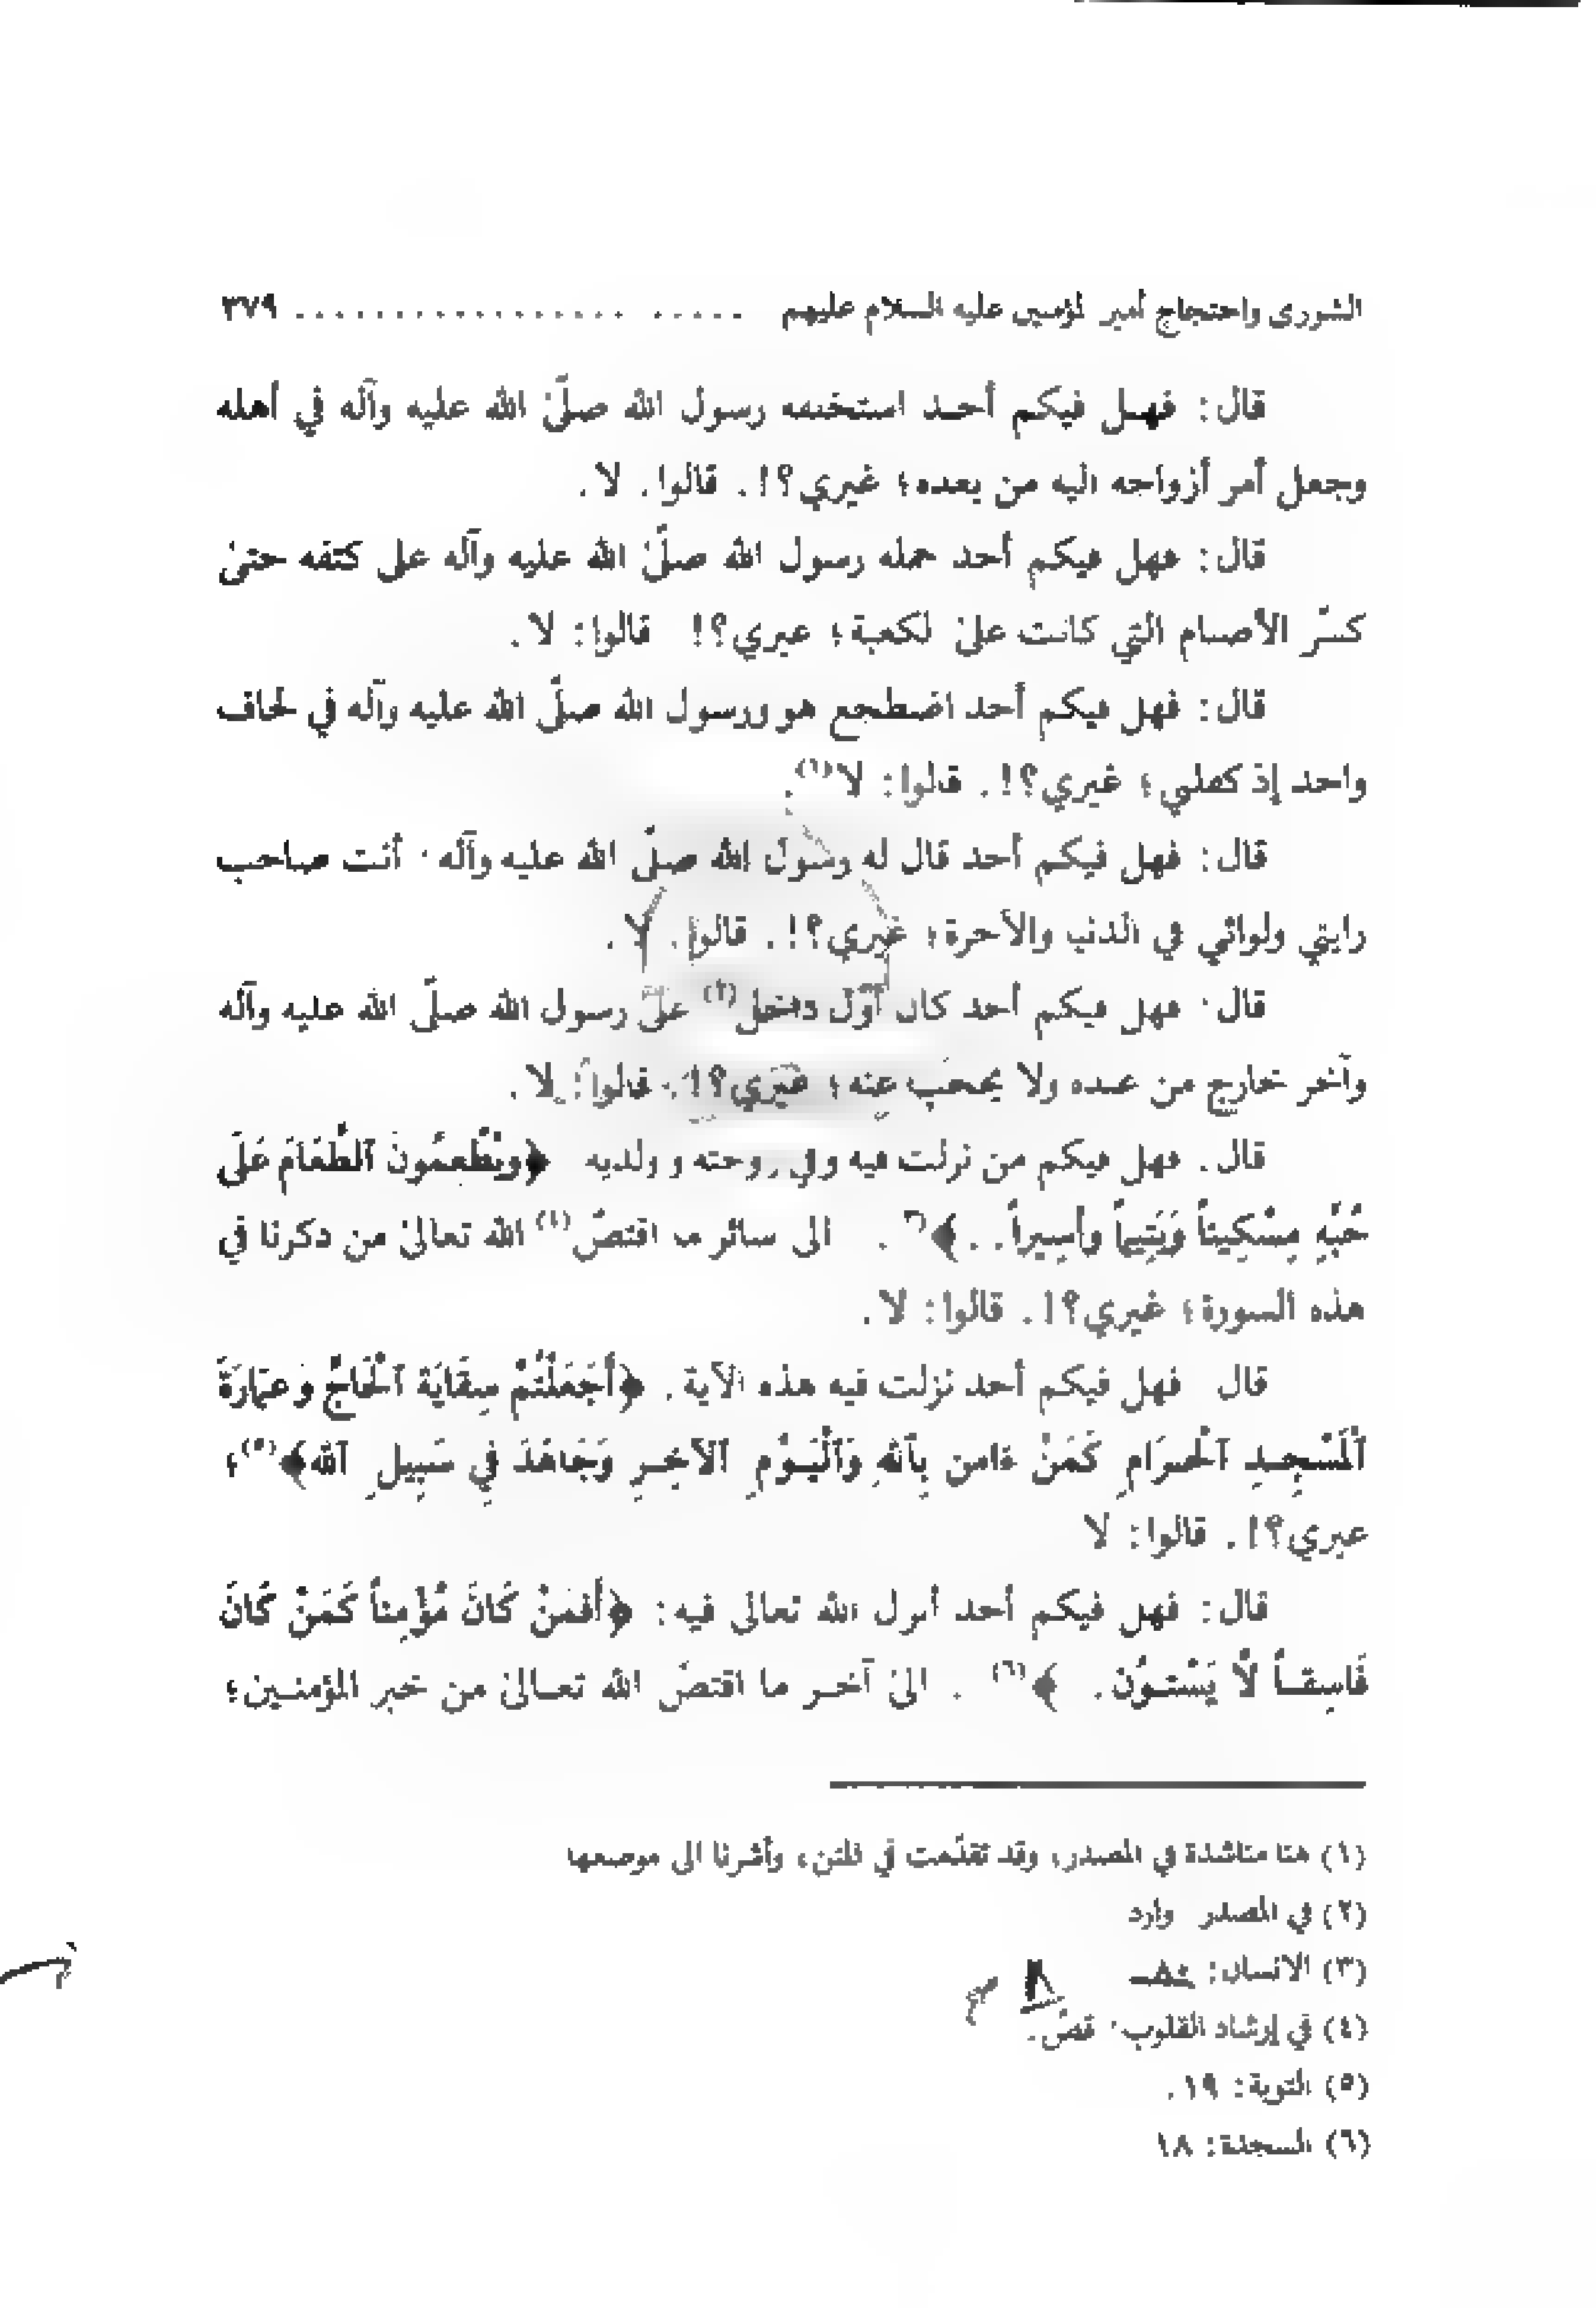 الشورى واحتجاج أمير المؤمنين عليه السلام عليهم ...................... ٣٧٩
قال: فهل فيكم أحد استخلفه رسول الله صلّىٰ الله عليه وآله في أهله
وجعل أمر أزواجه اليه من بعده؛ غيري؟!. قالوا: لا.
قال: فهل فيكم أحد حمله رسول الله صلّىٰ الله عليه وآله على كتفه حتىٰ
كسّر الأصنام التي كانت علىٰ الكعبة؛ غيري؟! قالوا: لا.
قال: فهل فيكم أحد اضطجع هو ورسول الله صلّى الله عليه وآله في لحاف
واحد إذ كفلني؛ غيري؟!. قالوا: لا(١).
قال: فهل فيكم أحد قال له رسول الله صلّى الله عليه وآله: أنت صاحب
رايتي ولوائي في الدنيا والآخرة؛ غيري؟!. قالوا: لا.
قال: فهل فيكم أحد كان أوّل داخل(٢) علىٰ رسول الله صلّى الله عليه وآله
وآخر خارج من عنده ولا يحجب عنه؛ غيري؟!. قالوا: لا.
قال: فهل فيكم من نزلت فيه وفي زوجته وولديه ﴿ويُطْعِمُونَ ٱلطَّعَامَ عَلَىٰ
حُبِّهِ مِسْكِيناً وَيَتِيماً وأَسِيراً..﴾(٣). الى سائر ما اقتصّ(٤) الله تعالىٰ من ذكرنا في
هذه السورة؛ غيري؟!. قالوا: لا.
قال فهل فيكم أحد نزلت فيه هذه الآية: ﴿أَجَعَلْتُمْ سِقَايَةَ ٱلْحَاجِّ وَعِمَارَةَ
ٱلْمَسْجِدِ ٱلْحَرَامِ كَمَنْ ءَامن بِٱللهِ وَٱلْيَوْمِ ٱلآخِرِ وَجَاهَدَ فِي سَبِيلِ ٱلله﴾(٥)؛
غيري؟!. قالوا: لا
قال: فهل فيكم أحد أنزل الله تعالى فيه: ﴿أَفَمَنْ كَانَ مُؤْمِناً كَمَنْ كَانَ
فَاسِقاً لَّا يَسْتَوُن. ﴾(٦) . الىٰ آخر ما اقتصّ الله تعالىٰ من خبر المؤمنين؛
(١) هنا مناشدة في المصدر، وقد تقدّمت في المتن، وأشرنا الى موضعها
(٢) في المصدر وارد
(٣) الانسان: ٨
(٤) في إرشاد القلوب: قصّ.
(٥) التوبة: ١٩.
(٦) السجدة: ١٨